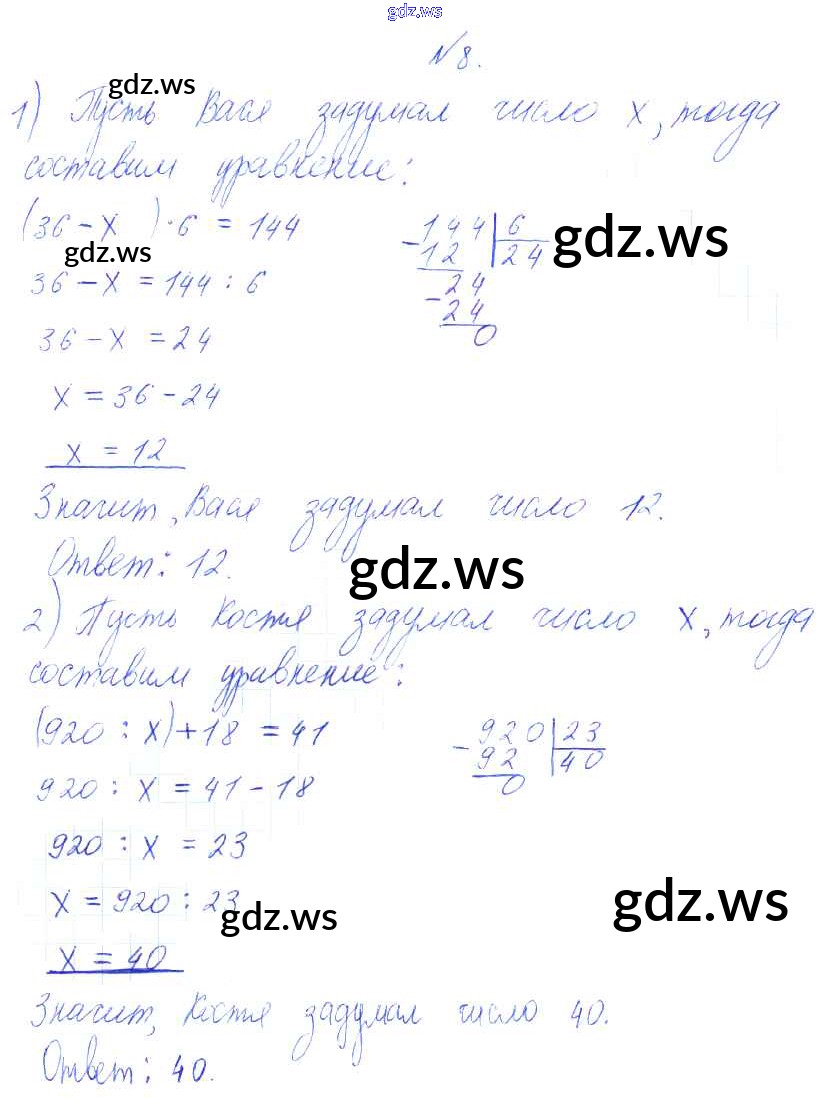 gdz.ws
№ 8.
gdz.ws
1) Пусть Вася задумал число x, тогда
составим уравнение:
(36 - x ) · 6 = 144
144 | 6
gdz.ws
- 12 24
gdz.ws
36 - x = 144 : 6
24
- 24
0
36 - x = 24
x = 36 - 24
x = 12
Значит, Вася задумал число 12.
Ответ: 12.
gdz.ws
2) Пусть Костя задумал число x, тогда
составим уравнение:
(920 : x) + 18 = 41
920 | 23
- 92 40
0
920 : x = 41 - 18
920 : x = 23
x = 920 : 23
gdz.ws
gdz.ws
x = 40
Значит, Костя задумал число 40.
Ответ: 40.